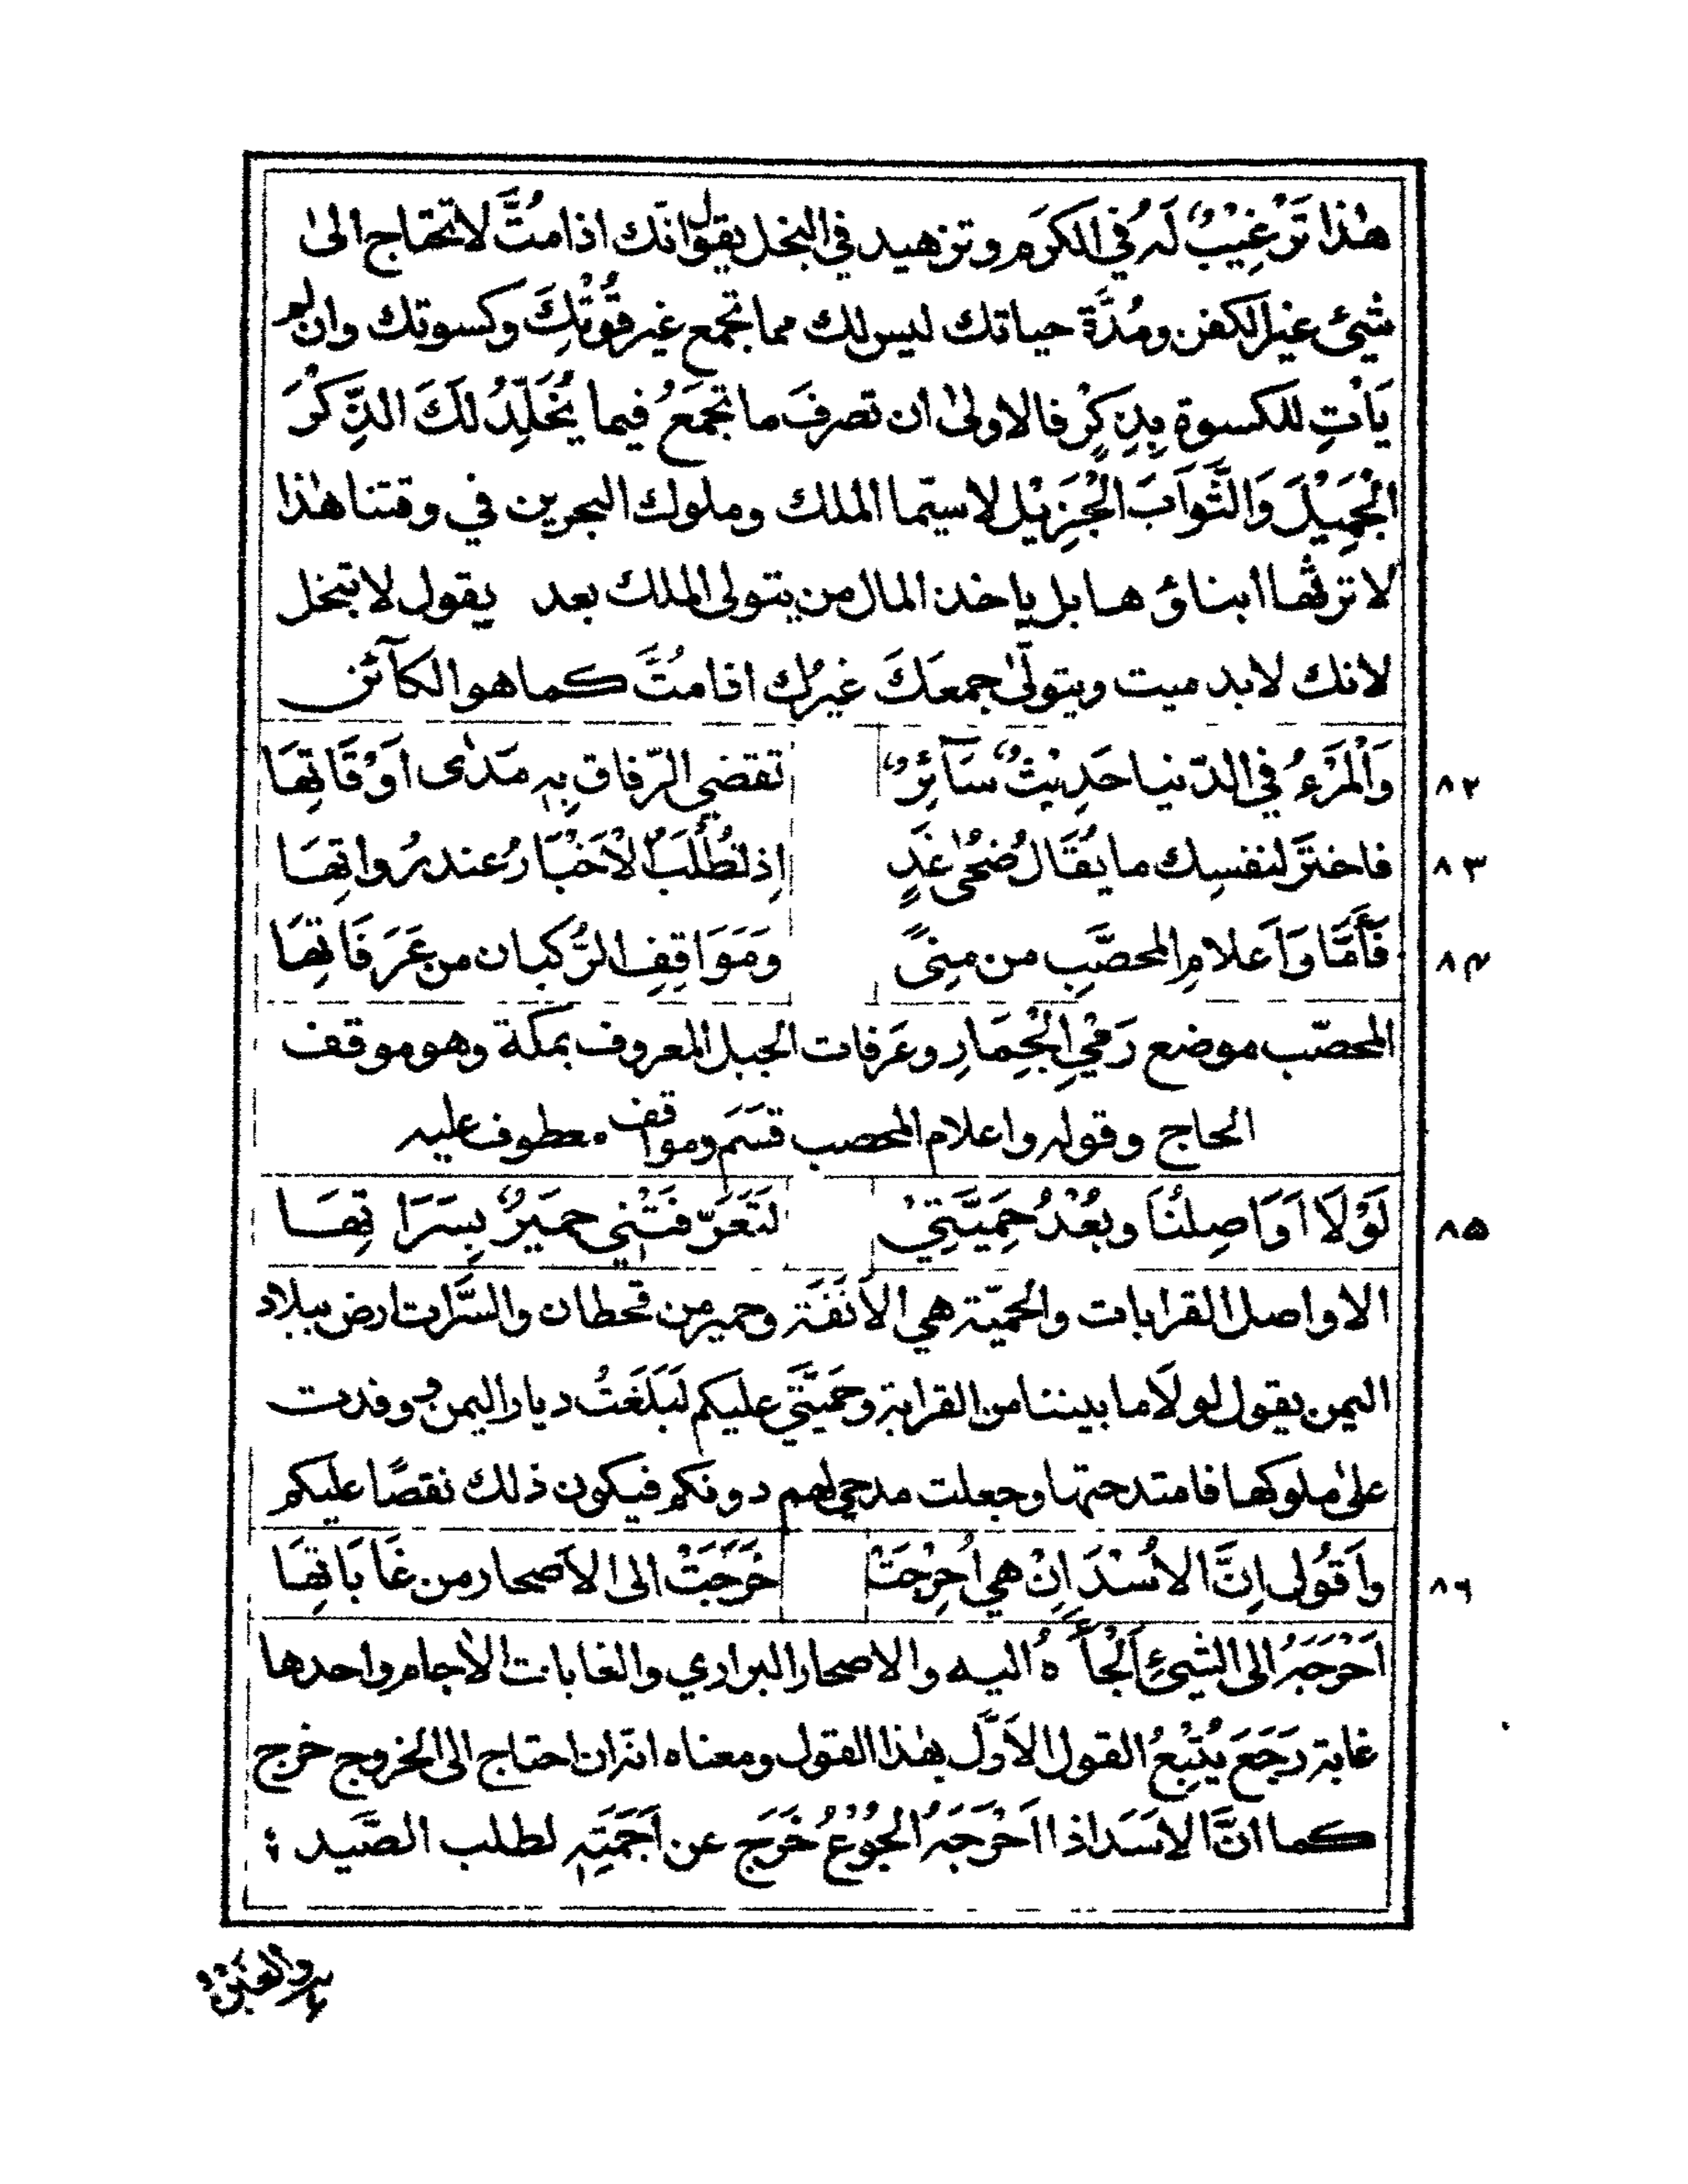 هٰذا تَرْغِيْبٌ لَهُ في الكَرَم وتزهيد في البخل يقول انّك اذا مُتَّ لا تحتاج الىٰ
شيئ غير الكفن ومُدَّة حياتك ليس لك مما تجمع غير قُوْتِكَ وكسوتك وان لم
يَأتِ للكسوة بِذِكرٍ فالاولىٰ ان تصرفَ ما تجمَعُ فيما يُخَلِّدُ لَكَ الذِّكْرَ
الْجَمِيْلَ وَالثَّوَابَ الْجَزِيْل لاسيّما الملك وملوك البحرين في وقتنا هٰذا
لا ترثها ابناؤها بل ياخذ المال من يتولى الملك بعد يقول لا تبخل
لانك لابد ميت ويتولّىٰ جمعَكَ غيرُك اذا مُتَّ كما هو الكآئن
٨٢ وَالْمَرْءُ في الدّنيا حَدِيْثٌ سَآئِرٌ تقضي الرّفاق بِهٖ مَدٰى اَوْقَاتِهَا
٨٣ فاختَرْ لنفسِك ما يُقَالُ ضُحٰى غَدٍ اِذ تُطْلَبُ الْاَخْبَارُ عند رُواتِهَا
٨٤ فَأَمَّا وَاَعلامِ المحصَّبِ من مِنىً وَمَوَاقِفِ الرُّكبان من عَرَفَاتِهَا
المحصّب موضع رَمْيِ الْجِمَارِ وعَرفات الجبل المعروف بمكة وهو موقف
الحاج وقوله واعلام المحصب قسَم ومواقف معطوف عليه
٨٥ لَوْلَا اَوَاصِلُنَا وبُعْدُ حِمِيَّتِيْ لتَعَرَّفَتْنِي حِمْيَرٌ بِسَرَاتِهَا
الاواصل القرابات والحميّة هي الاَنَفَة وحمير من قحطان والسَّرات ارض ببلاد
اليمن يقول لولَا ما بيننا من القرابة وحَمِيَّتي عليكم لبَلَغتُ ديار اليمن ووفدت
علىٰ ملوكها فامتدحتها وجعلت مدحي لهم دونكم فيكون ذلك نقصًا عليكم
٨٦ واَقُولُ اِنَّ الاُسْدَ اِنْ هي اُحْوِجَتْ خَرَجَتْ الى الاَصحار من غَابَاتِهَا
اَحْوَجَهُ الى الشيئِ اَلْجَأَهُ اليه والاصحار البراري والغابات الاٰجام واحدها
غابة رَجَعَ يُتْبِعُ القول الاَوَّل بهٰذا القول ومعناه انّه ان احتاج الى الخروج خرج
كما انَّ الاسَد اذا اَحْوَجَهُ الجُوْعُ خَرَج عن اَجَمَتِهٖ لطلب الصَّيد ؛